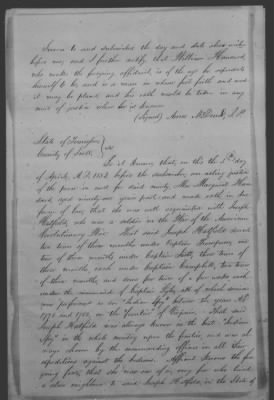 Sworn to and subscribed the day and date above writ
before me; and I further certify that William Hansard
who makes the foregoing affidavit, is of the age he represents
himself to be and is a man in whose good faith and
it may be placed and his oath would be taken in any
court of justice where he is known
(Signed) J.P.
State of Tennessee
County of Scott
Be it known, that, on this the 5th day
of April, A.D. 1852, before the undersigned, an acting justice
of the peace in and for said county, Mrs. Margaret
aged ninety one years past and made oath in
form of law, that she was well acquainted with Joseph
Hatfield, who was a soldier in the War of the American
Revolutionary War. That said Joseph Hatfield served
two tours of three months under Captain Thompson, one
tour of three months under Captain Scott, three tours of
three months each under Captain Campbell, two tours
of three months, and one tour of a few weeks each
under the command of Captain all of which service
was performed as an "Indian Spy" between the years A.D.
177 and 178 on the "Frontier" of Virginia. That said
Joseph Hatfield was always known as the best "Indian
Spy" in the whole country upon the frontier and was al
ways chosen by the commanding officers in all their
expeditions against the Indians. Affiant knows the fore
going facts, that she was one of
a close neighbor to said Joseph Hatfield, in the State of